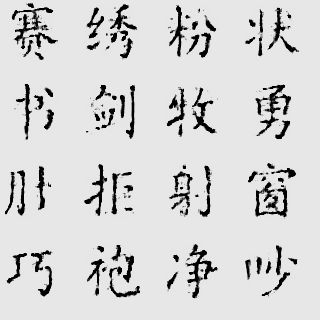 赛绣粉状
书剑牧勇
拒射窗
巧袍净吵